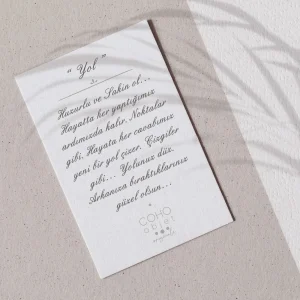 “ Yol ”
Huzurlu ve Sakin ol...
Hayatta her yaptığımız
ardımızda kalır. Noktalar
gibi. Hayata her cevabımız
yeni bir yol çizer. Çizgiler
gibi... Yolunuz düz.
Arkanıza bıraktıklarınız
güzel olsun...
COHO
objet